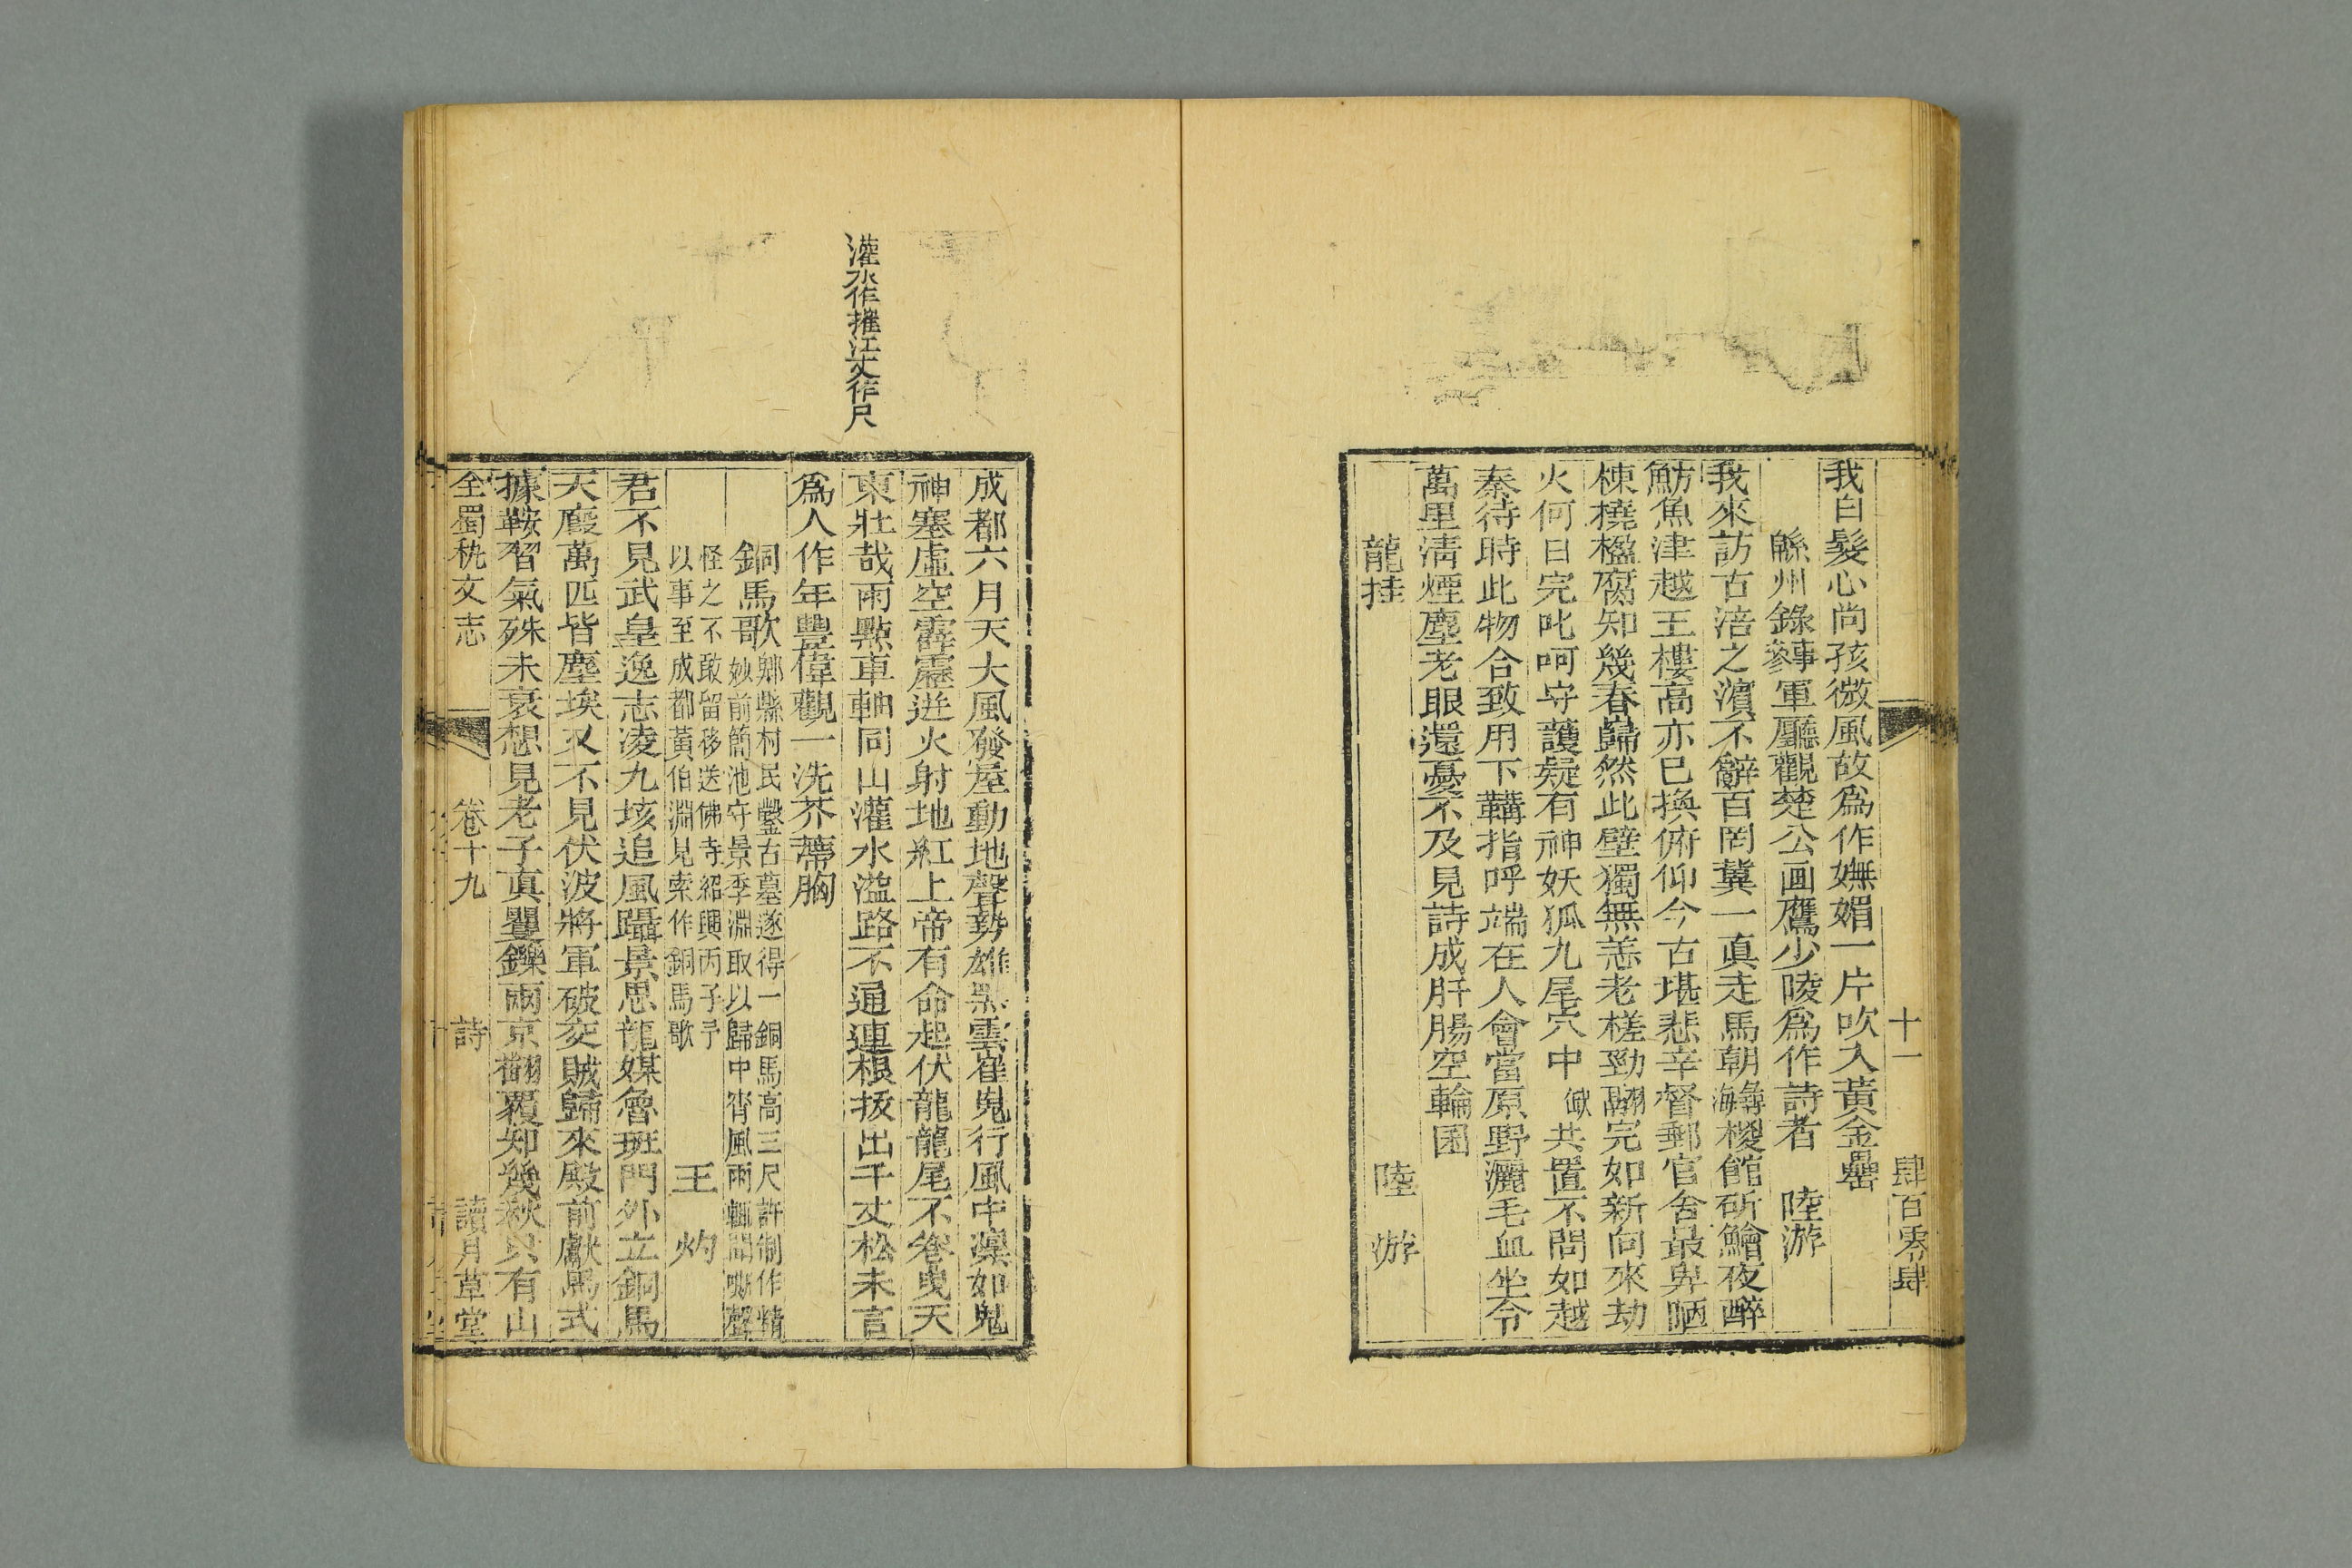 十一 肆百零肆
我白髮心尚孩微風故爲作嫵媚一片吹入黃金罍
緜州錄參事軍廳觀楚公画鷹少陵爲作詩者 陸游
我來訪古涪之濱不辭百罔冀一眞走馬朝尋海椶館斫鱠夜醉
魴魚津越王樓高亦已換俯仰今古堪悲辛督郵官舍最卑陋
棟橈楹腐知幾春巋然此壁獨無恙老槎勁翮完如新向來劫
火何日完叱呵守護疑有神妖狐九尾穴中 共置不問如越
秦待時此物合致用下韝指呼端在人會當原野灑毛血坐令
萬里淸煙塵老眼還憂不及見詩成肝腸空輪囷
龍挂 陸游
灌水作摧江丈作尺
成都六月天大風發屋動地聲勢雄黑雲崔嵬行風中凜如鬼
神塞虛空霹靂迸火射地紅上帝有命起伏龍龍尾不卷曳天
東壯哉雨點車軸同山灌水溢路不通連根拔出千丈松未言
爲人作年豐偉觀一洗芥蔕胸
銅馬歌 郷縣村民鑿古墓遂得一銅馬高三尺許制作精
妙前簡池守景季淵取以歸中宵風雨輒聞嘶聲
怪之不敢留移送佛寺紹興丙子予
以事至成都黃伯淵見索作銅馬歌 王灼
君不見武皇逸志凌九垓追風躡景思龍媒魯班門外立銅馬
天廄萬匹皆塵埃又不見伏波將軍破交賊歸來殿前獻馬式
據鞍習氣殊未衰想見老子眞矍鑠兩京翻覆知幾秋只有山
全蜀秇文志 卷十九 詩 讀月草堂